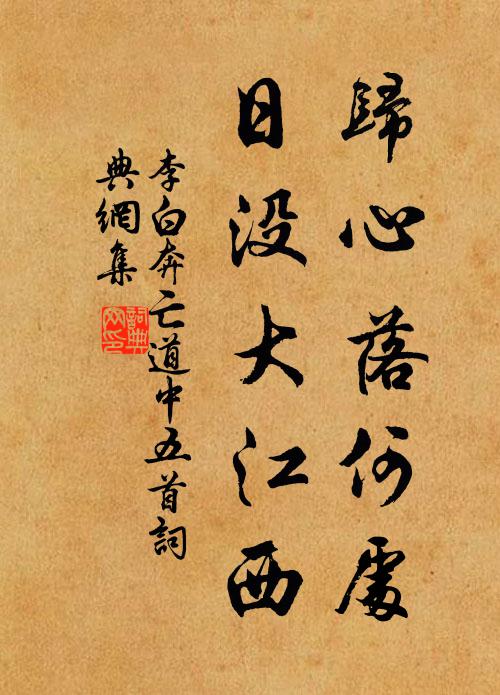 歸心落何處
日没大江西
李白奔亡道中五首詞
典網集
詞典
網印